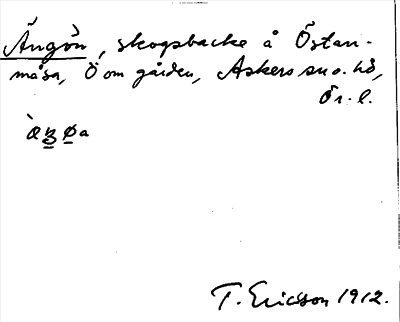 Ängön, skogsbacke å Östan-
måsa, Ö om gården, Askers sn o. hd,
Ör. l.
T. Ericsson 1912.